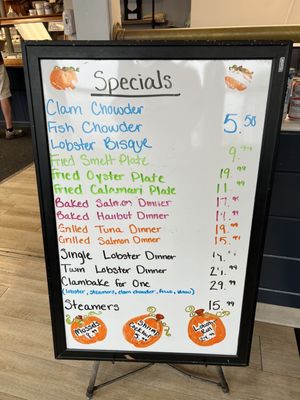 Specials
Clam Chowder
Fish Chowder 5.50
Lobster Bisque
Fried Smelt Plate 9.99
Fried Oyster Plate 19.99
Fried Calamari Plate 11.99
Baked Salmon Dinner 17.99
Baked Halibut Dinner
Grilled Tuna Dinner 19.99
Grilled Salmon Dinner 15.99
Single Lobster Dinner
Twin Lobster Dinner
Clambake for One 29.99
(lobster, steamers, clam chowder, fries, slaw)
Steamers 15.99
Mussels
Shrimp
Lobster
Roll